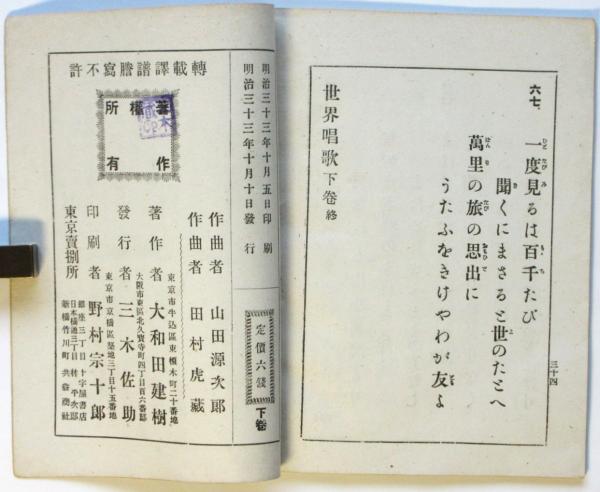 六七、一度見るは百千たび
聞くにまさると世のたとへ
萬里の旅の思出に
うたふをきけやわが友よ
世界唱歌下巻 終
三十四
轉載譯譜謄寫不許
著作
權
所有
明治三十三年十月五日印刷
明治三十三年十月十日發行
定價六錢
下巻
作曲者 山田源次郎
作曲者 田村虎藏
東京市牛込區東榎木町二十番地
著作者 大和田建樹
大阪市東區北久寶寺町四丁目百六番邸
發行者 三木佐助
東京市京橋區築地三丁目十五番地
印刷者 野村宗十郎
東京賣捌所
銀座三丁目 十字屋書店
日本橋通三丁目 林平次郎
新橋竹川町 共益商社